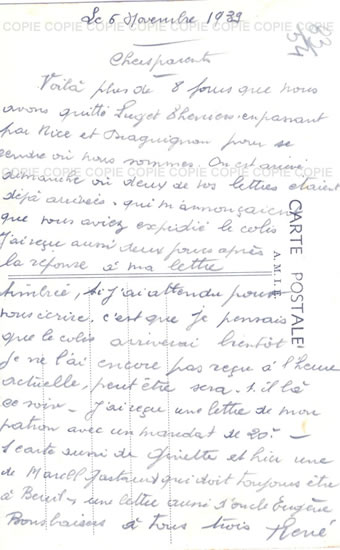 Le 6 Novembre 1939
Chers parents
Voilà plus de 8 jours que nous
avons quitté Puget Theniers en passant
par Nice et Draguignan pour se
rendre où nous sommes. On est arrivé
dimanche où deux de vos lettres etaient
déjà arrivées qui m'annonçaient
que vous aviez expédié le colis
J'ai reçu aussi deux jours après
la réponse à ma lettre
timbrée, si j'ai attendu pour
vous écrire, c'est que je pensais
que le colis arriverai bientôt
je ne l'ai encore pas reçu à l'heure
actuelle, peut être sera-t-il là
ce soir - J'ai reçu une lettre de mon
patron avec un mandat de 20f -
1 carte aussi de Ginette et hier une
de Marcel qui doit toujours être
à une lettre aussi d'oncle Eugène
Bons baisers à tous trois René
CARTE POSTALE
A. M. I. E.
COPIE COPIE COPIE COPIE COPIE COPIE